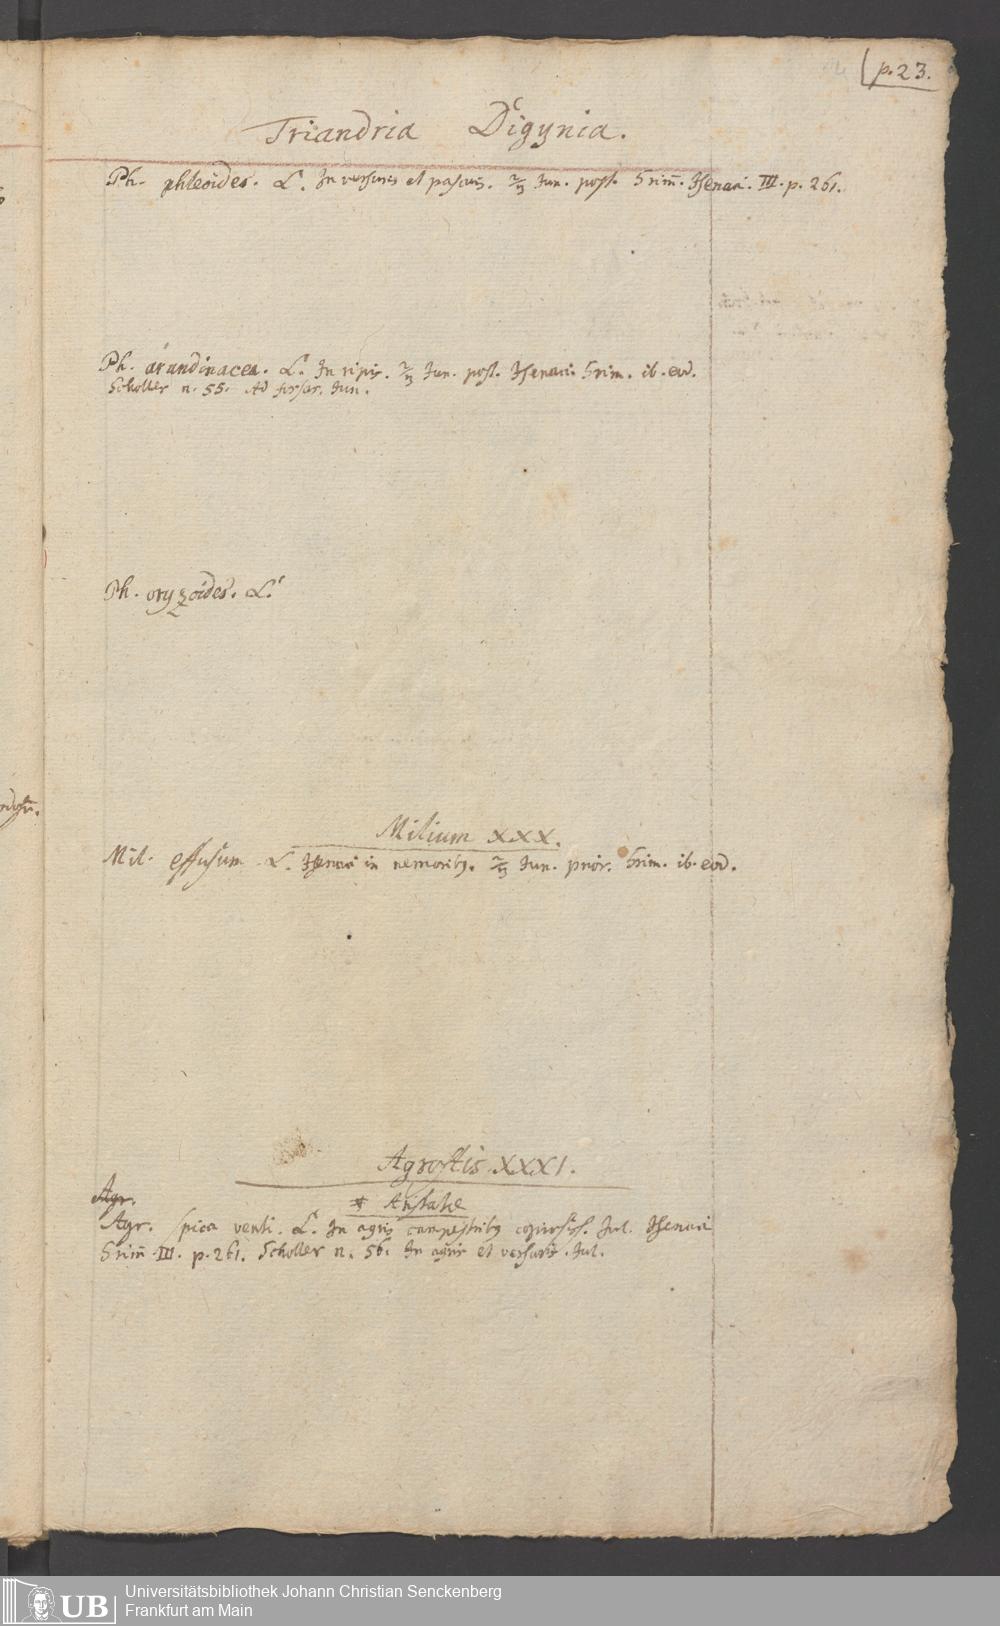 p. 23.
Triandria Digynia.
Ph. phleoides. L. In versuris et pascuis. ♃ Jun. post. Grim̄. Isenaci. III. p. 261.
Ph. arundinacea. L. In ripis. ♃ Jun. post. Isenaci. Grim. ib. eod.
Scholler n. 55. Ad fossas. Jun.
Ph. oryzoides. L.
Milium XXX.
Mil. effusum L. Isenaci in nemorib9. ♃ Jun. prior. Grim. ib. eod.
Agrostis XXXI.
Agr.
* Aristatae
Agr. spica venti. L. In agris campestrib9 Jul. Isenaci
Grim̄ III. p. 261. Scholler n. 56. In agris et versuris. Jul.
UB Universitätsbibliothek Johann Christian Senckenberg
Frankfurt am Main